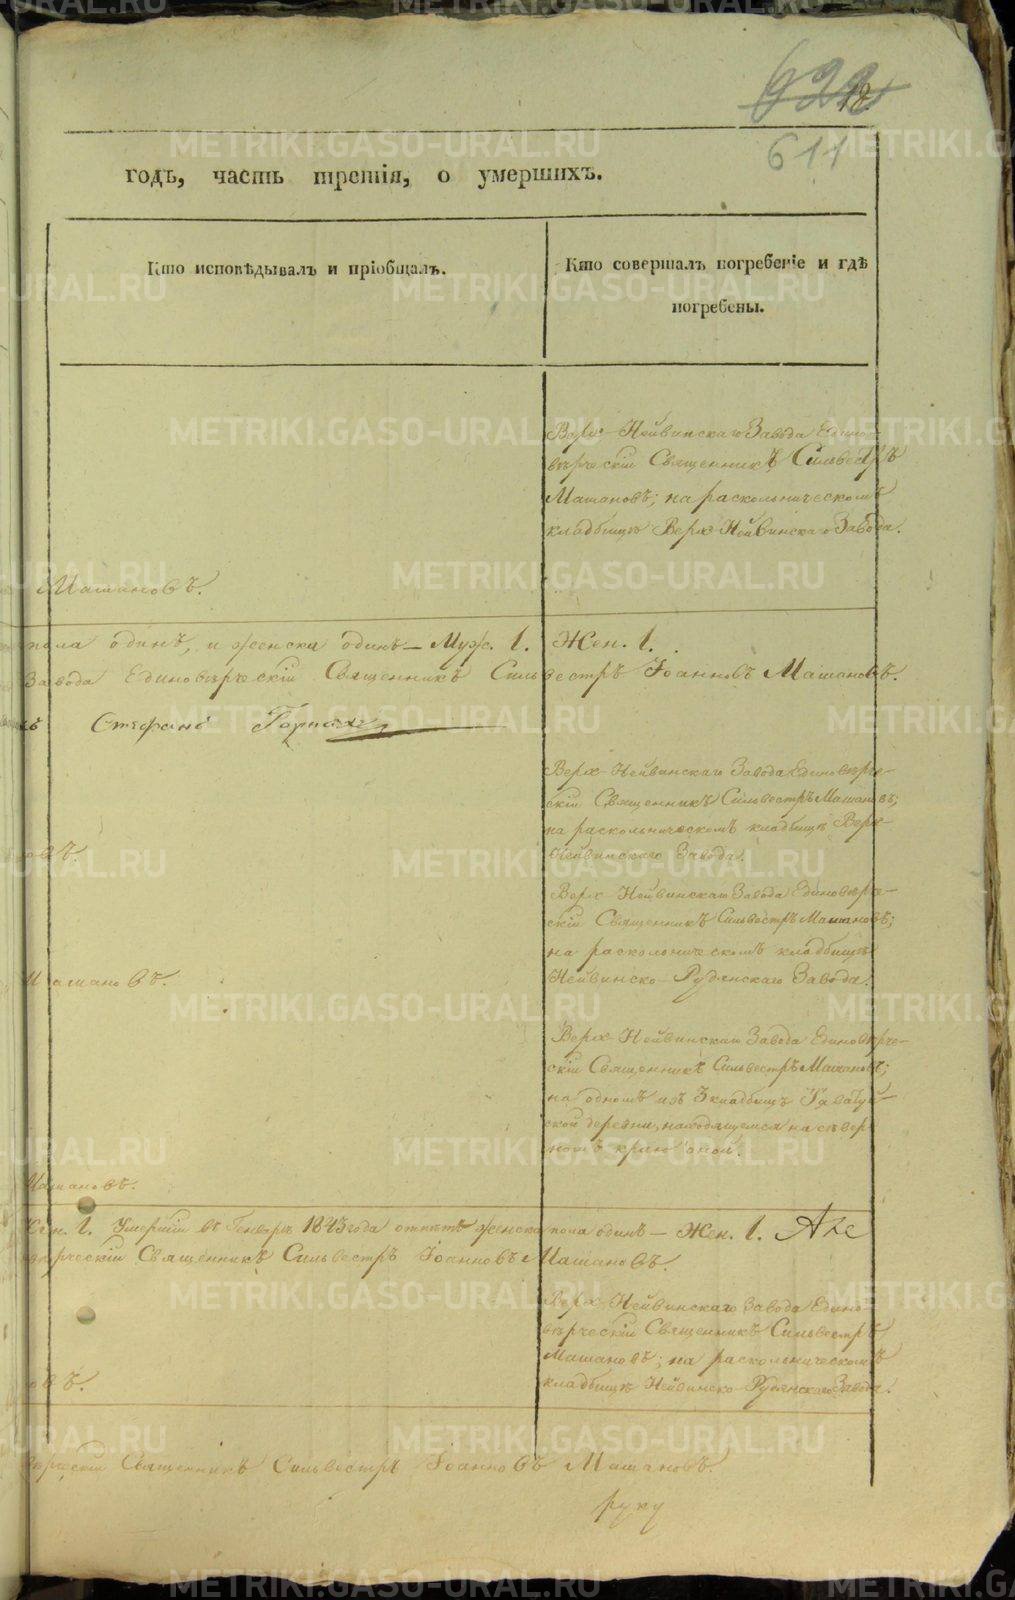 12.
611
годъ, часть третія, о умершихъ.
Кто исповѣдывалъ и пріобщалъ.
Кто совершалъ погребеніе и гдѣ
погребены.
Верх-Нейвинскаго Завода Едино-
вѣрческій Священникъ Сильвестръ
Машановъ; на раскольническомъ
кладбищѣ Верх Нейвинскаго Завода.
Машановъ.
пола одинъ, и женска одинъ — Муж. 1. Жен. 1.
Завода Единовѣрческій Священникъ Сильвестръ Іоанновъ Машановъ.
Стефанъ
Верх-Нейвинскаго Завода Единовѣрче-
скій Священникъ Сильвестръ Машановъ;
на раскольническомъ кладбищѣ Верх-
Нейвинскаго Завода.
овъ.
Верх Нейвинскаго Завода Единовѣрче-
скій Священникъ Сильвестръ Машановъ;
на раскольническомъ кладбищѣ
Нейвинско-Рудянскаго Завода.
Машановъ.
Верх-Нейвинскаго Завода Единовѣрче-
скій Священникъ Сильвестръ Машановъ;
на одномъ изъ 3 кладбищъ Таватуй-
ской деревни, находящемся на сѣвер-
номъ краю оной.
Машановъ.
Жен. 1. Умершій въ Генварѣ 1843 года отпѣтъ женска пола одинъ — Жен. 1.
вѣрческій Священникъ Сильвестръ Іоанновъ Машановъ.
Верх-Нейвинскаго Завода Едино-
вѣрческій Священникъ Сильвестръ
Машановъ; на раскольническомъ
кладбищѣ Нейвинско-Рудянскаго Завода.
овъ.
вѣрческій Священникъ Сильвестръ Іоанновъ Машановъ.
руку
METRIKI.GASO-URAL.RU